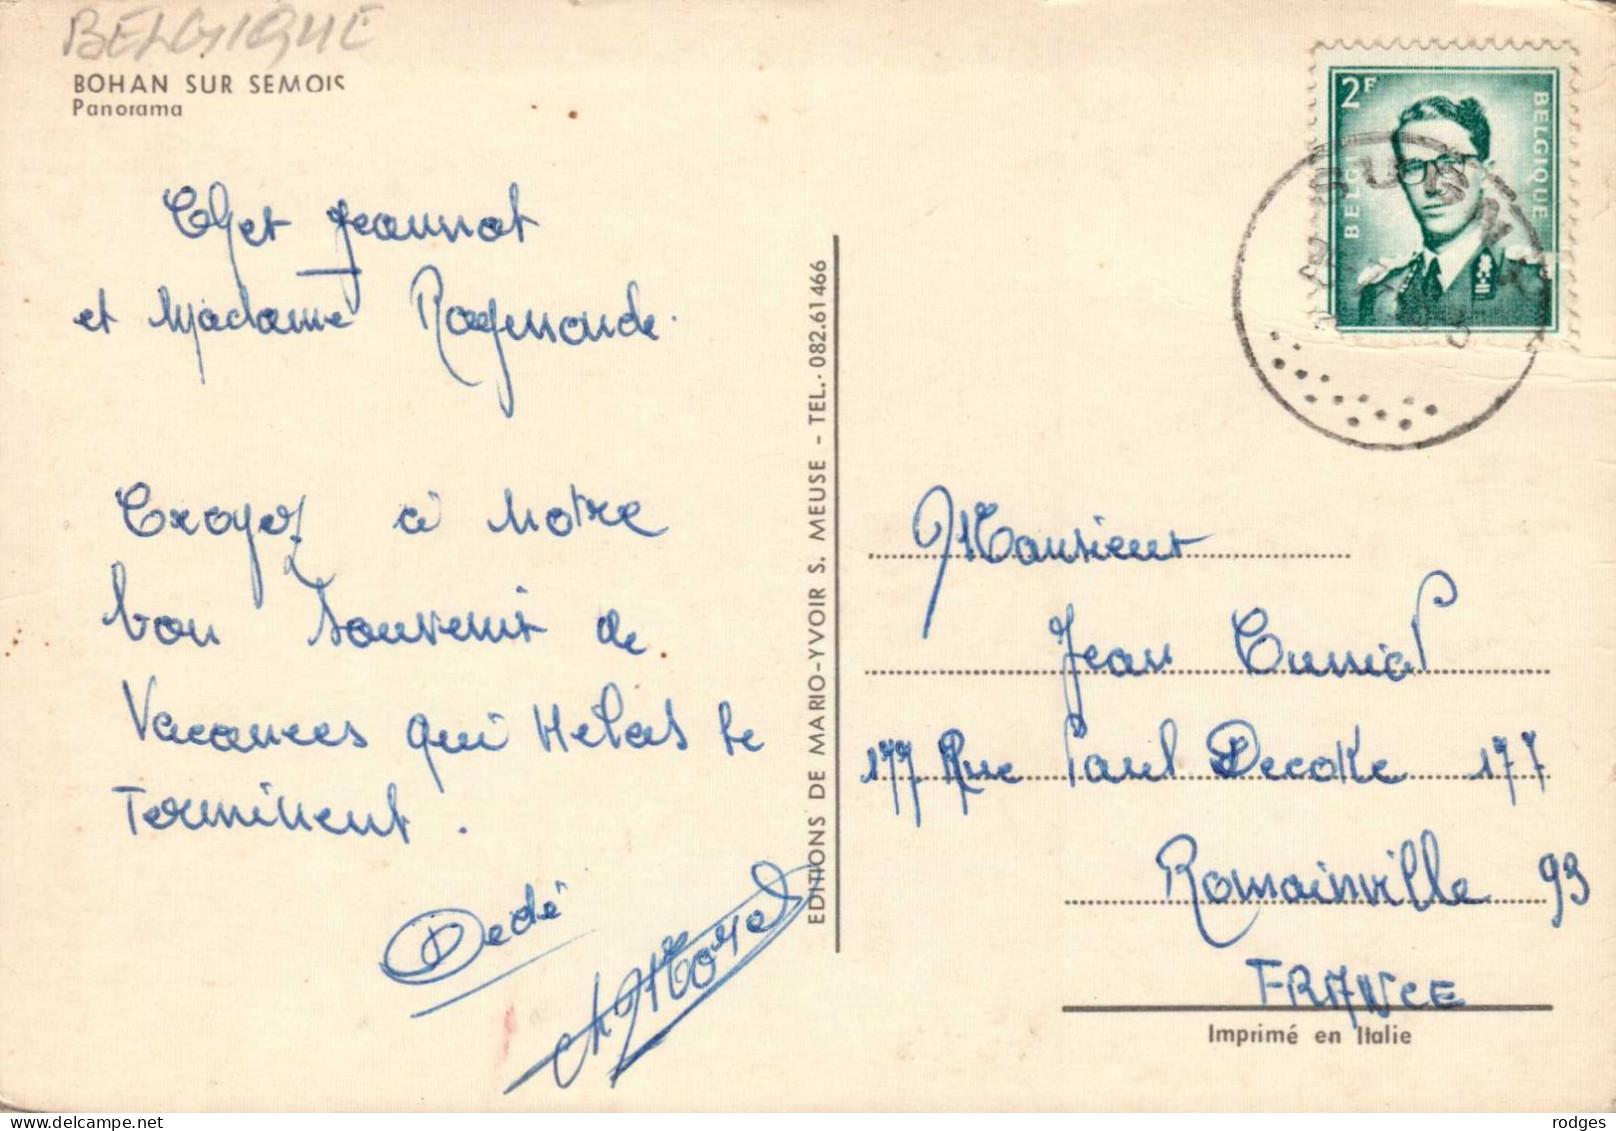 BELGIQUE
BOHAN SUR SEMOIS
Panorama
Cher Jeannot
et Madame Raymonde.
Croyez à Notre
bon Souvenir de
Vacances qui Hélas se
Terminent.
Dedé
EDITIONS DE MARIO-YVOIR S. MEUSE - TEL. 082.61466
2F
BELGIË
BELGIQUE
SUGNY
Monsieur
Jean
177 Rue Paul Decoke 177
Romainville 93
FRANCE
Imprimé en Italie
delcampe.net
rodges